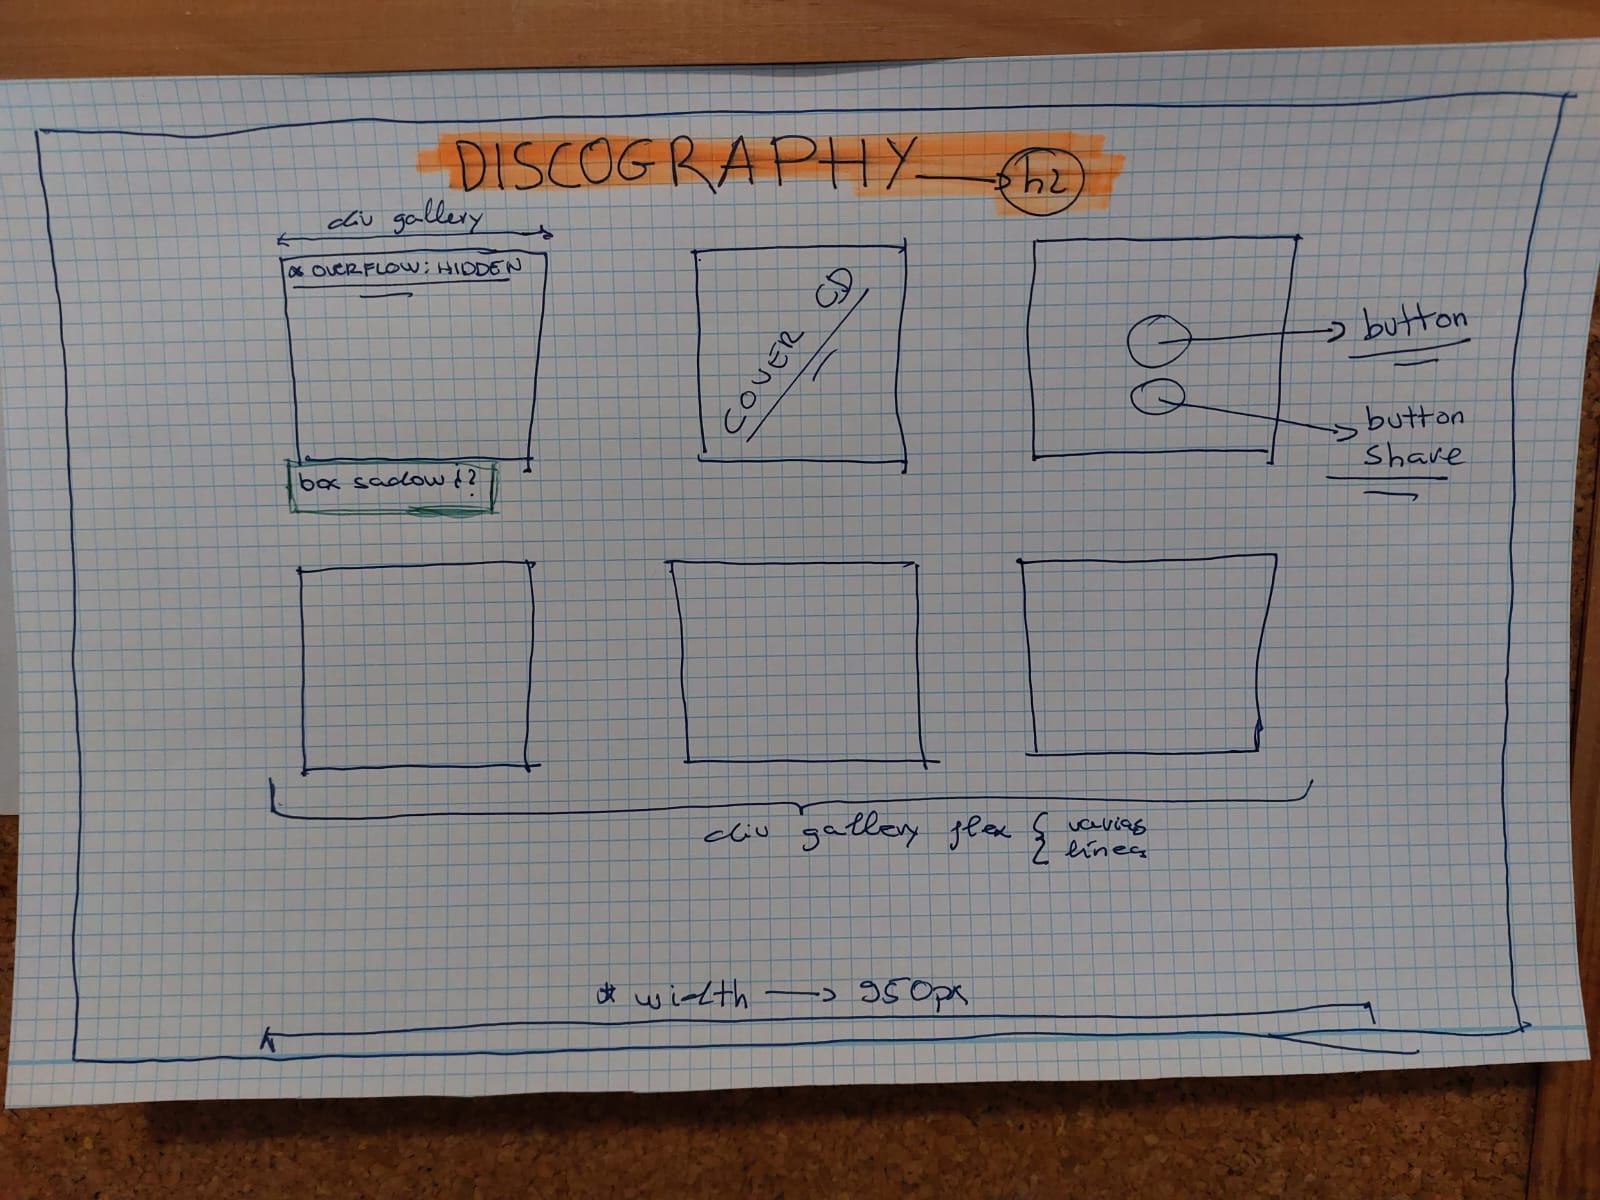 DISCOGRAPHY → h2
div gallery
* OVERFLOW: HIDDEN
COVER CD
button
button
share
box sadow ¿?
div gallery flex { varias
lineas
* width → 950px